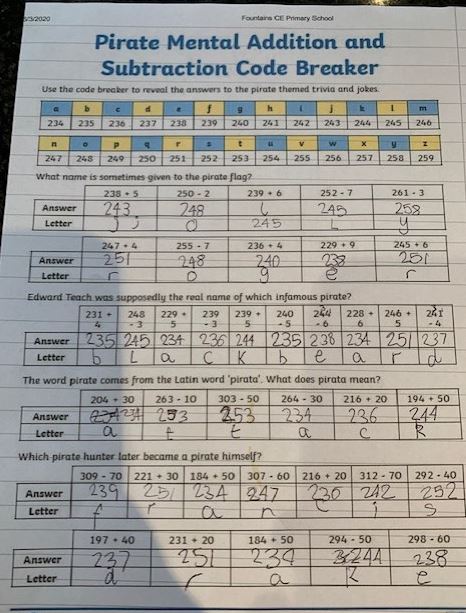 3/3/2020 Fountains CE Primary School
Pirate Mental Addition and
Subtraction Code Breaker
Use the code breaker to reveal the answers to the pirate themed trivia and jokes.
a b c d e f g h i j k l m
234 235 236 237 238 239 240 241 242 243 244 245 246
n o p q r s t u v w x y z
247 248 249 250 251 252 253 254 255 256 257 258 259
What name is sometimes given to the pirate flag?
238 + 5 250 - 2 239 + 6 252 - 7 261 - 3
Answer 243 248 L 245 258
Letter j o 245 L y
247 + 4 255 - 7 236 + 4 229 + 9 245 + 6
Answer 251 248 240 238 251
Letter r o g e r
Edward Teach was supposedly the real name of which infamous pirate?
231 + 4 248 - 3 229 + 5 239 - 3 239 + 5 240 - 5 244 - 6 228 + 6 246 + 5 241 - 4
Answer 235 245 234 236 244 235 238 234 251 237
Letter b L a c k b e a r d
The word pirate comes from the Latin word 'pirata'. What does pirata mean?
204 + 30 263 - 10 303 - 50 264 - 30 216 + 20 194 + 50
Answer 234 253 253 234 236 244
Letter a t t a c k
Which pirate hunter later became a pirate himself?
309 - 70 221 + 30 184 + 50 307 - 60 216 + 20 312 - 70 292 - 40
Answer 239 251 234 247 236 242 252
Letter f r a n c i s
197 + 40 231 + 20 184 + 50 294 - 50 298 - 60
Answer 237 251 234 244 238
Letter d r a k e